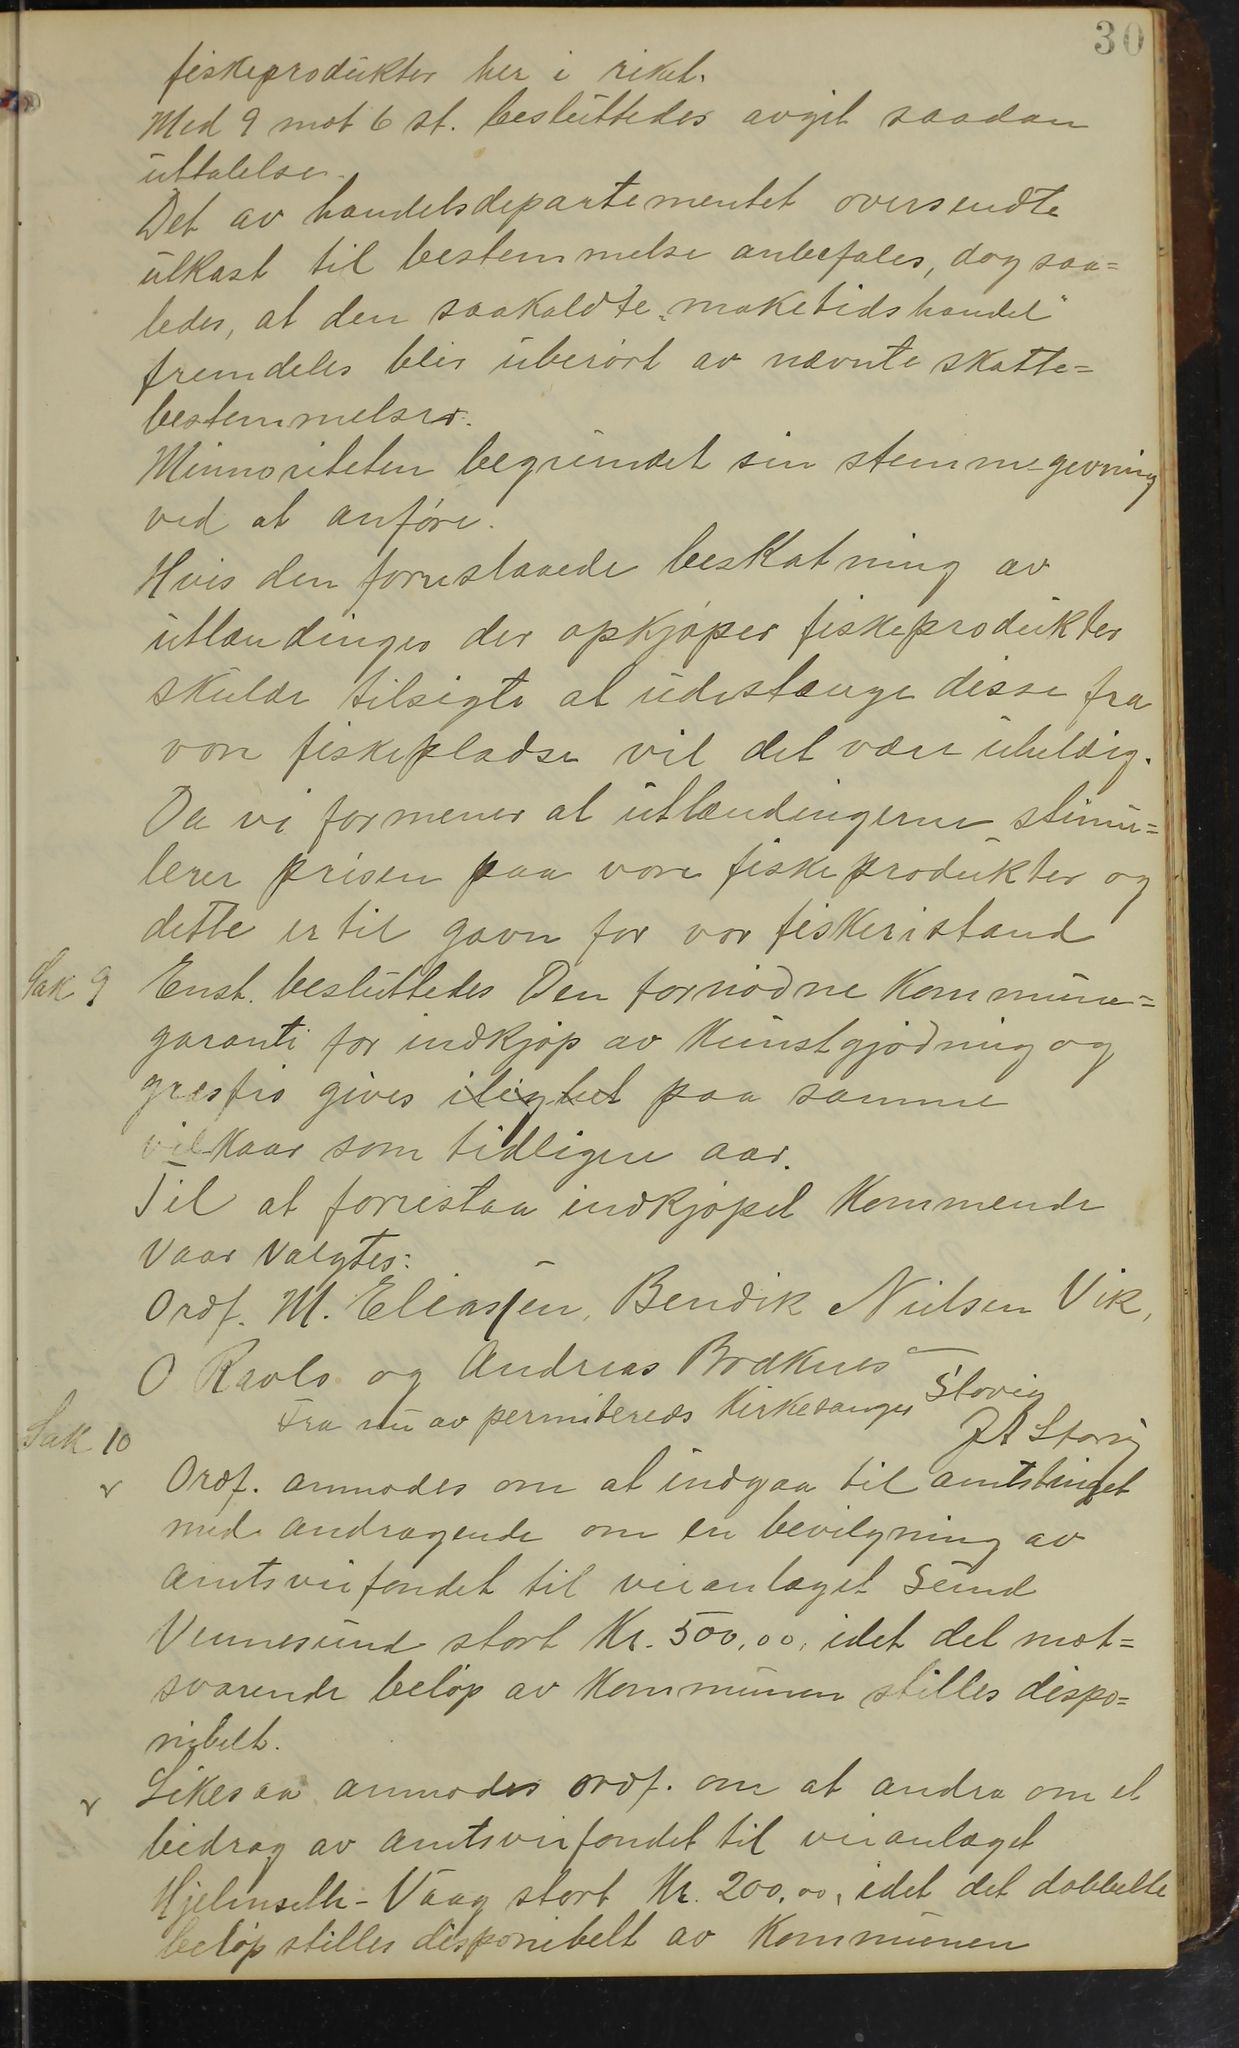 30
fiskeprodukter her i riket.
Med 9 mot 6 st. besluttedes avgit saadan
uttalelse.
Det av handelsdepartementet oversendte
utkast til bestemmelse anbefales, dog saa=
ledes, at den saakaldte „maketidshandel"
fremdeles blir uberørt av nævnte skatte=
bestemmelser.
Minnoriteten begrundet sin stemmegivning
ved at anføre.
Hvis den foreslaaede beskatning av
utlændinger der opkjøper fiskeprodukter
skulde tilsigte at udestænge disse fra
vore fiskepladse vil det være uheldig.
Da vi formener at utlændingerne stimu=
lerer prisen paa vore fiskeprodukter og
dette er til gavn for vor fiskeristand
Sak 9 Enst. besluttedes Den fornødne Kommune=
garanti for indkjøp av Kunstgjødning og
græsfrø gives paa samme
vilkaar som tidligere aar.
Til at forrestaa indkjøpet Kommende
Vaar Valgtes:
Ordf. M. Eliassen, Bendik Nielsen Vik,
O Ravlo og Andreas Bræknes
Fra nu av permitereds Kirkesanger Storvig
J A Storvig
Sak 10
v Ordf. anmodes om at indgaa til amtstinget
med andragende om en bevilgning av
Amtsveifondet til veianlæget Sund
Vennesund stort Kr. 500,00, idet det mot=
svarende beløp av Kommunen stilles dispo=
nibelt.
v Likesaa anmodes ordf. om at andra om et
bidrag av Amtsveifondet til veianlæget
Hjelmseth-Vaag stort Kr. 200,00, idet det dobbelte
beløp stilles disponibelt av Kommunen